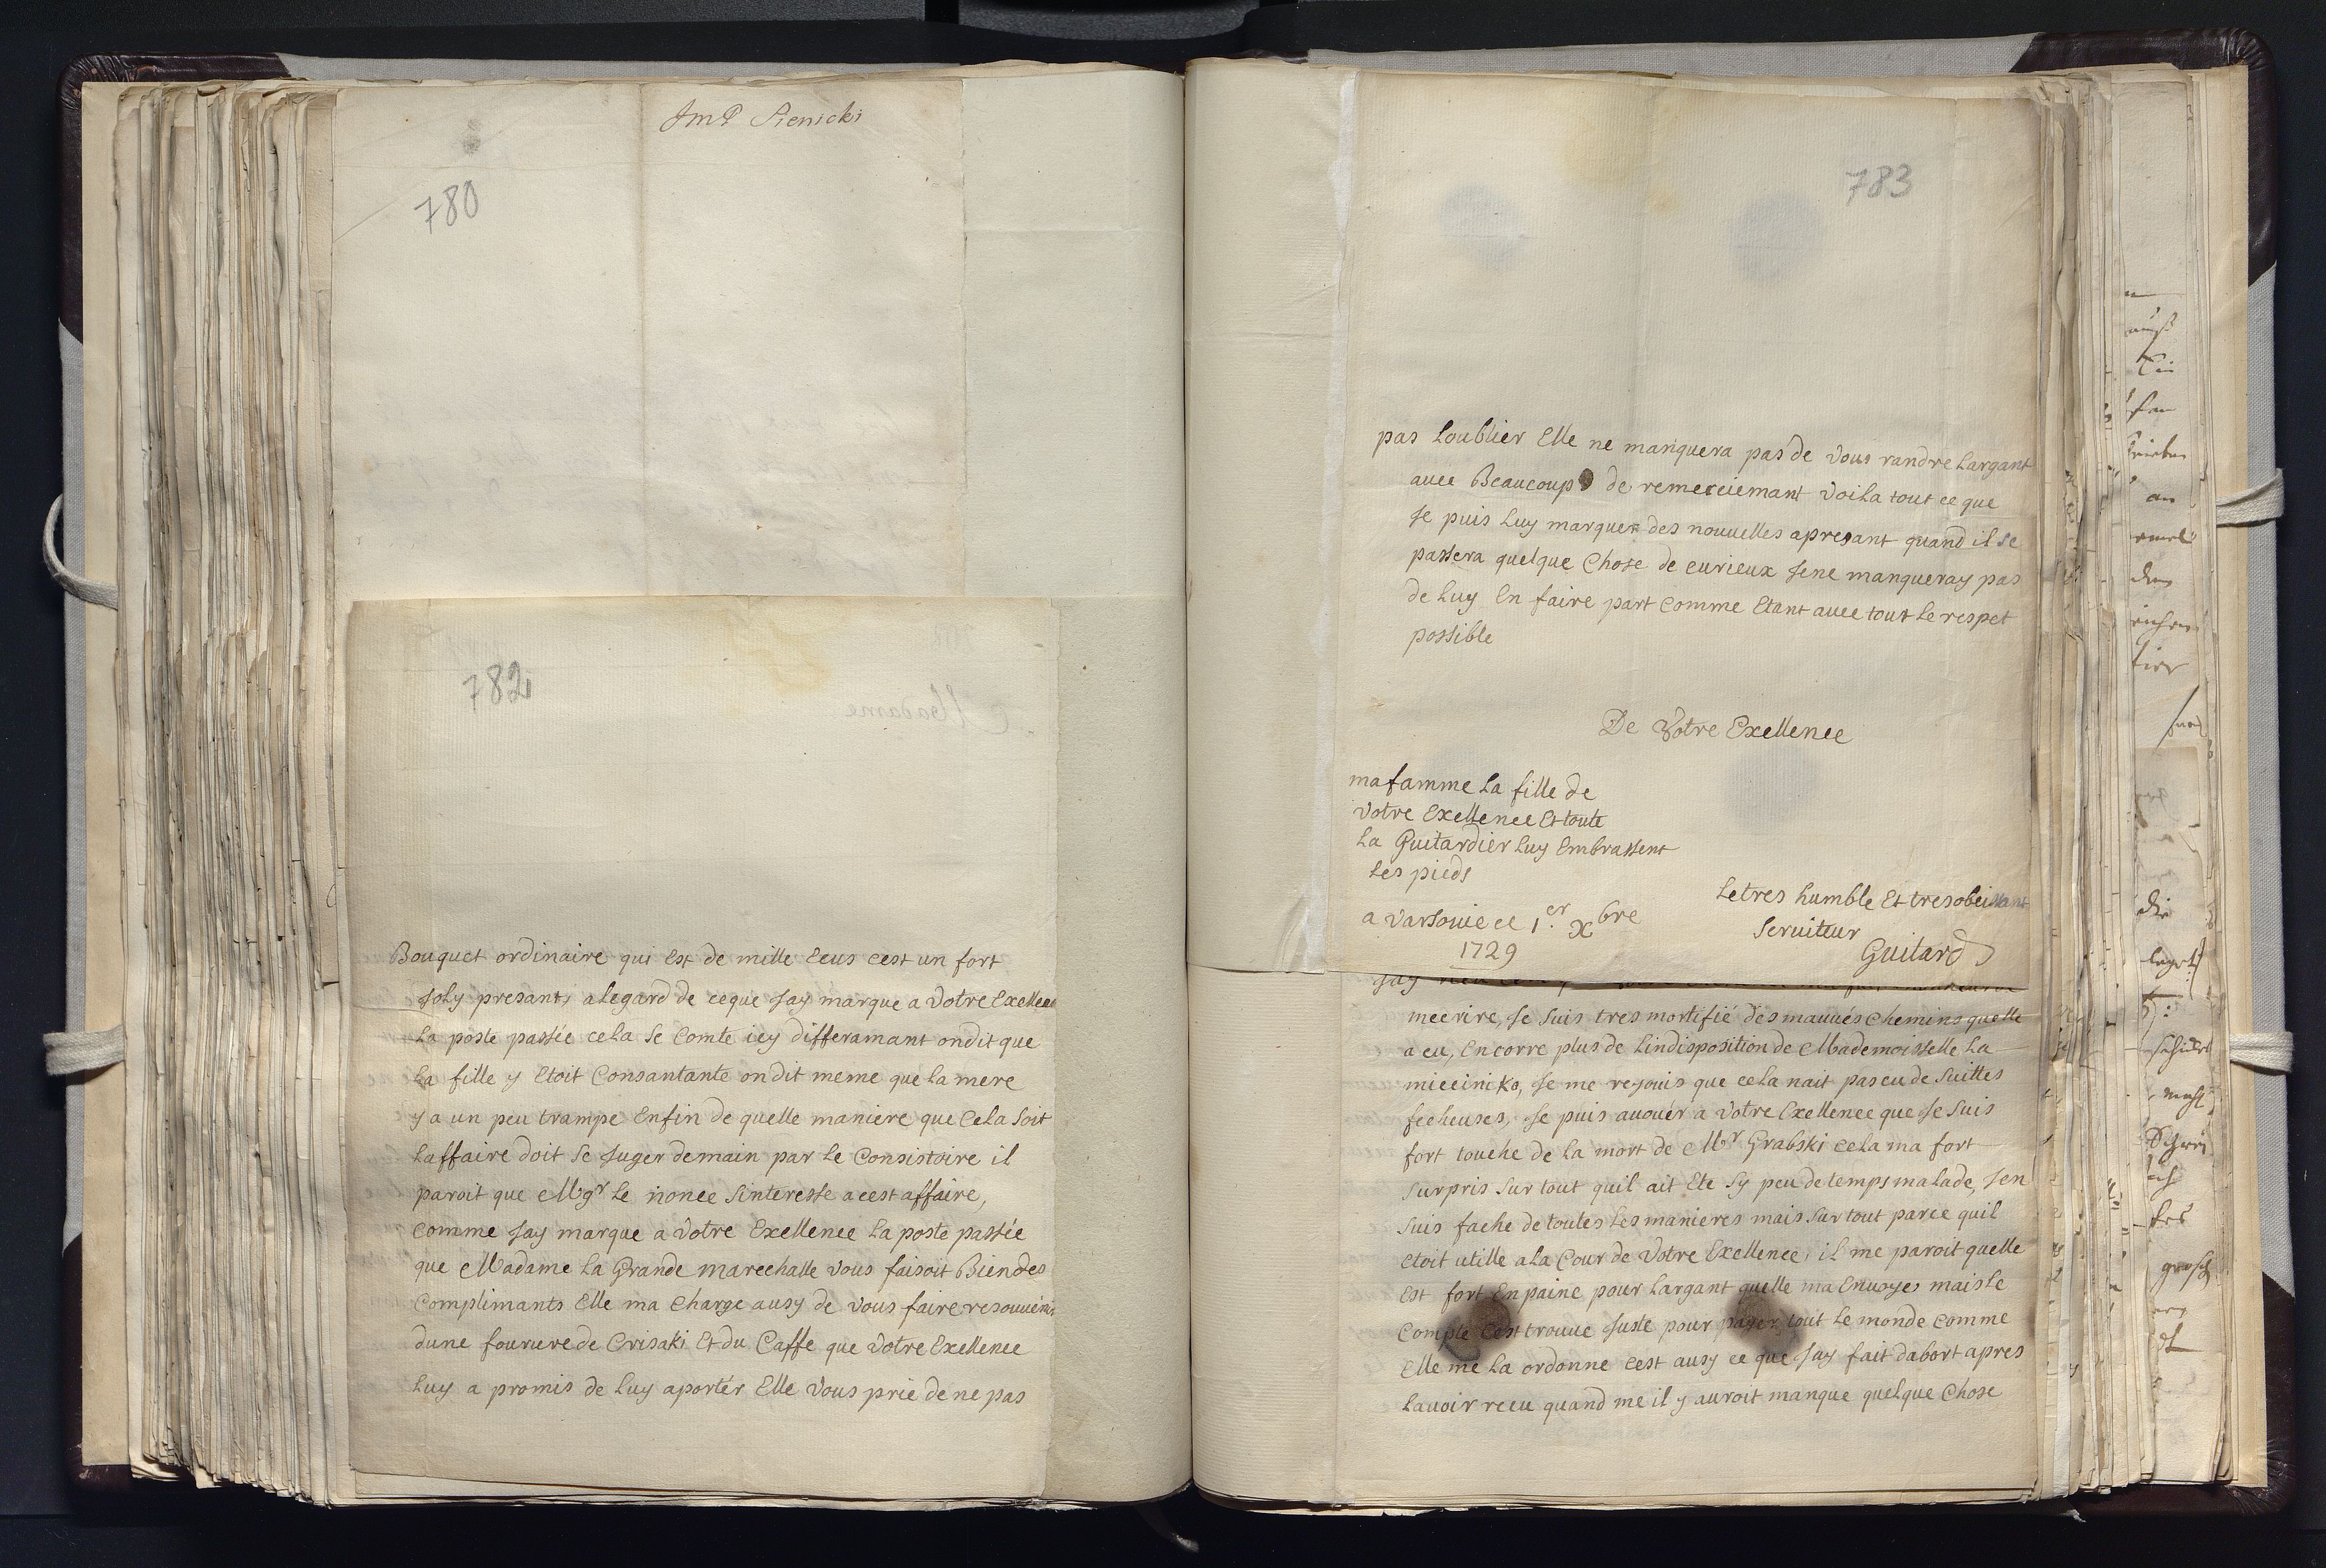 JmP Sienicki
780
782
Bouquet ordinaire qui Est de mille Ecus cest un fort
Joly presant, alegard de ceque Jay marque a Votre Exellence
La poste passée cela se Comte icy differamant ondit que
La fille y Etoit Consantante on dit meme que la mere
y a un peu trampe Enfin de quelle maniere que Cela soit
Laffaire doit se Juger demain par le Consistoire il
paroit que Mgr Le nonce sinteresse a cest affaire,
comme Jay marque a Votre Exellence La poste passée
que Madame La Grande marechalle vous faisoit Biendes
Complimants Elle ma Charge ausy de vous faire resouuenir
dune fourure de Crisaki Et du Caffe que Votre Exellence
Luy a promis de Luy aportér Elle Vous prie de ne pas
783
pas Loublier Elle ne manquera pas de vous randre Largant
auec Beaucoup de remerciemant voila tout ce que
Je puis Luy marquer des nouuelles apresant quand il se
passera quelque Chose de curieux Jene manqueray pas
de Luy En faire part comme Etant auec tout Le respet
possible
De Votre Exellence
mafamme La fille de
Votre Exellence Et toute
La Guitardier Luy Embrassent
Les pieds
a Varsouie ce 1.er Xbre
1729
Letres humble Et tresobeissant
Seruiteur
Guitard
Jay
mecrire, Je suis tres mortifié des mauués chemins quelle
a eu, Encorre plus de Lindisposition de Mademoisselle La
micciniko, Je me rejouis que cela nait pas eu de suittes
fecheuses, Je puis auouér a Votre Exellence que Je suis
fort touche de la mort de Mr Grabski cela ma fort
surpris sur tout quil ait Ete sy peu de temps malade, Jen
suis fache de toutes Les manieres mais sur tout parce quil
etoit utille a la Cour de Votre Exellence, il me paroit quelle
Est fort En paine pour Largant quelle ma Enuoye, mais le
Compte Cest trouue Juste pour payer tout Le monde comme
Elle me La ordonne cest ausy ce que Jay fait dabort apres
Lauoir receu quand me il y auroit manque quelque Chose